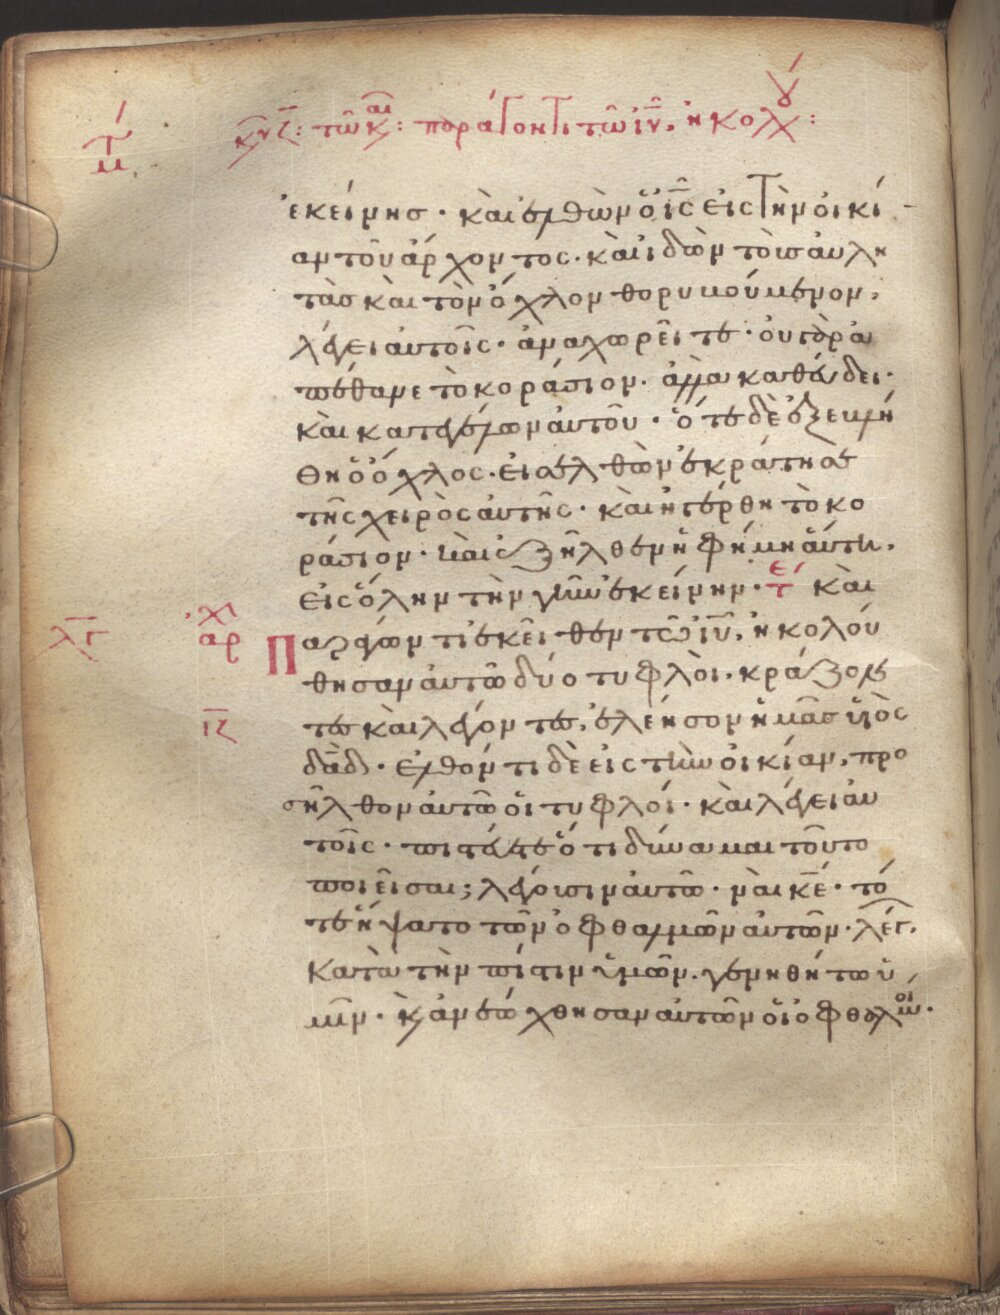 κυ ζ: τῶ και κ: παράγοντι τῶ ιυ, ἠκολου χ:
ἐκείνησ · καὶ ἐλθὼν ὁ ις εἰς τὴν οἰκί
αν τοῦ ἄρχοντος · καὶ ἰδὼν τοὺσ αὐλη
τὰσ καὶ τὸν ὄχλον θορυβούμενον,
λέγει αὐτοῖς · ἀναχωρεῖτε · οὐ γὰρ ἀ
πέθανε τὸ κοράσιον · ἀλλὰ καθεύδει ·
καὶ κατεγέλων αὐτοῦ · ὅτε δὲ ἐξεβλή
θη ὁ ὄχλος · εἰσελθὼν ἐκράτησε
τῆς χειρὸς αὐτῆς · καὶ ἠγέρθη τὸ κο
ράσιον · καὶ ἐξῆλθεν ἡ φήμη αὕτη,
εἰς ὅλην τὴν γῆν ἐκείνην · τε καὶ
λγ αρχ Παράγων τι ἐκεῖθεν τῶ ιυ, ἠκολού
θησαν αὐτῶ δύο τυφλοὶ · κράζον
ιζ τες καὶ λέγοντες, ἐλέησον ἡμᾶσ υἱὸς
δαδ · ἐλθόντι δὲ εἰς τὴν οἰκίαν, προ
σῆλθον αὐτῶ οἱ τυφλοί · καὶ λέγει αὐ
τοῖς · πιστεύετε ὅτι δύναμαι τοῦτο
ποιῆσαι; λέγουσιν αὐτῶ · ναὶ κε · τό
τε ἥψατο τῶν ὀφθαλμῶν αὐτῶν · λέγ,
κατὰ τὴν πίστιν ὑμῶν · γενηθήτω ὑ
μῖν · κ ἀνεώχθησαν αὐτῶν οἱ ὀφθαλμοι ·